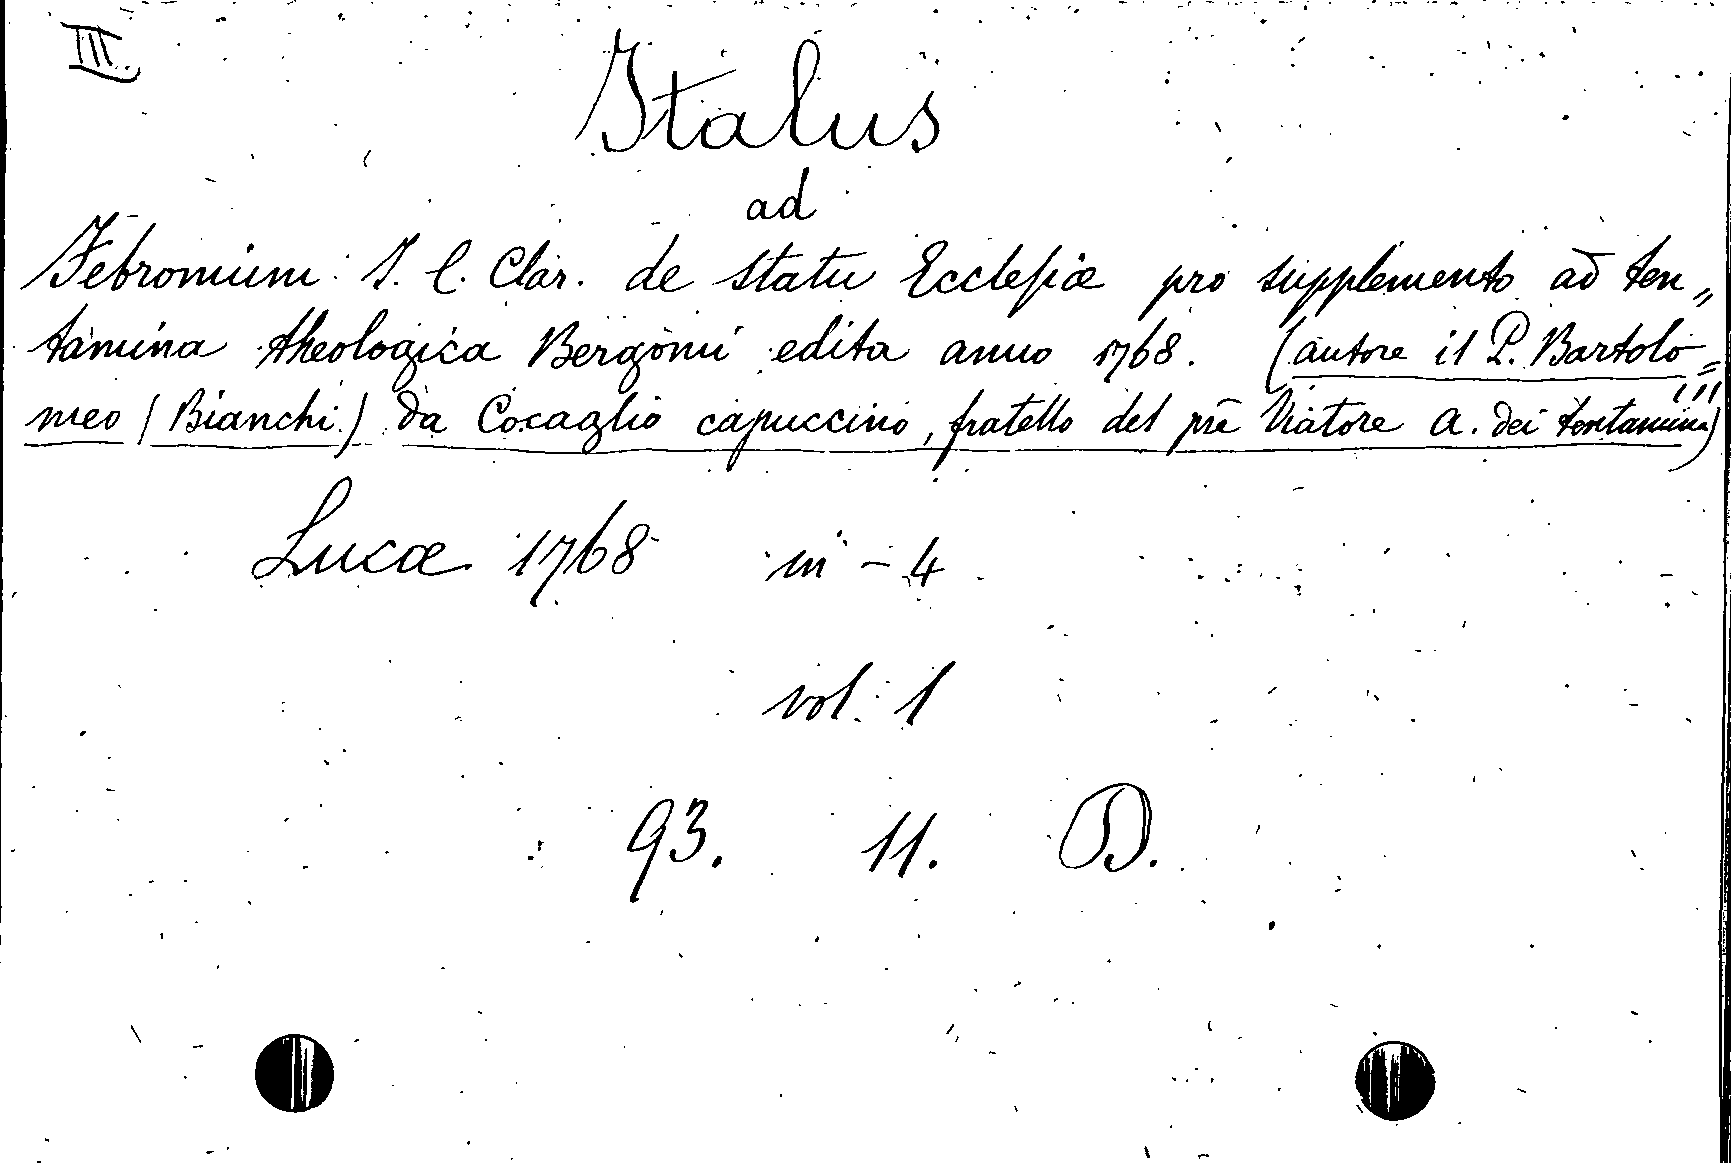 III.
Italus
ad
Febronium J. C. Clar. de statu Ecclesiæ pro supplemento ad ten„
tamina theologica Bergomi edita anno 1768. (autore il P. Bartolo=
meo (Bianchi) da Cocaglio capuccino, fratello del prē Viatore a. dei tentamina)
Lucæ 1768 in - 4
vol. 1
93. 11. D.